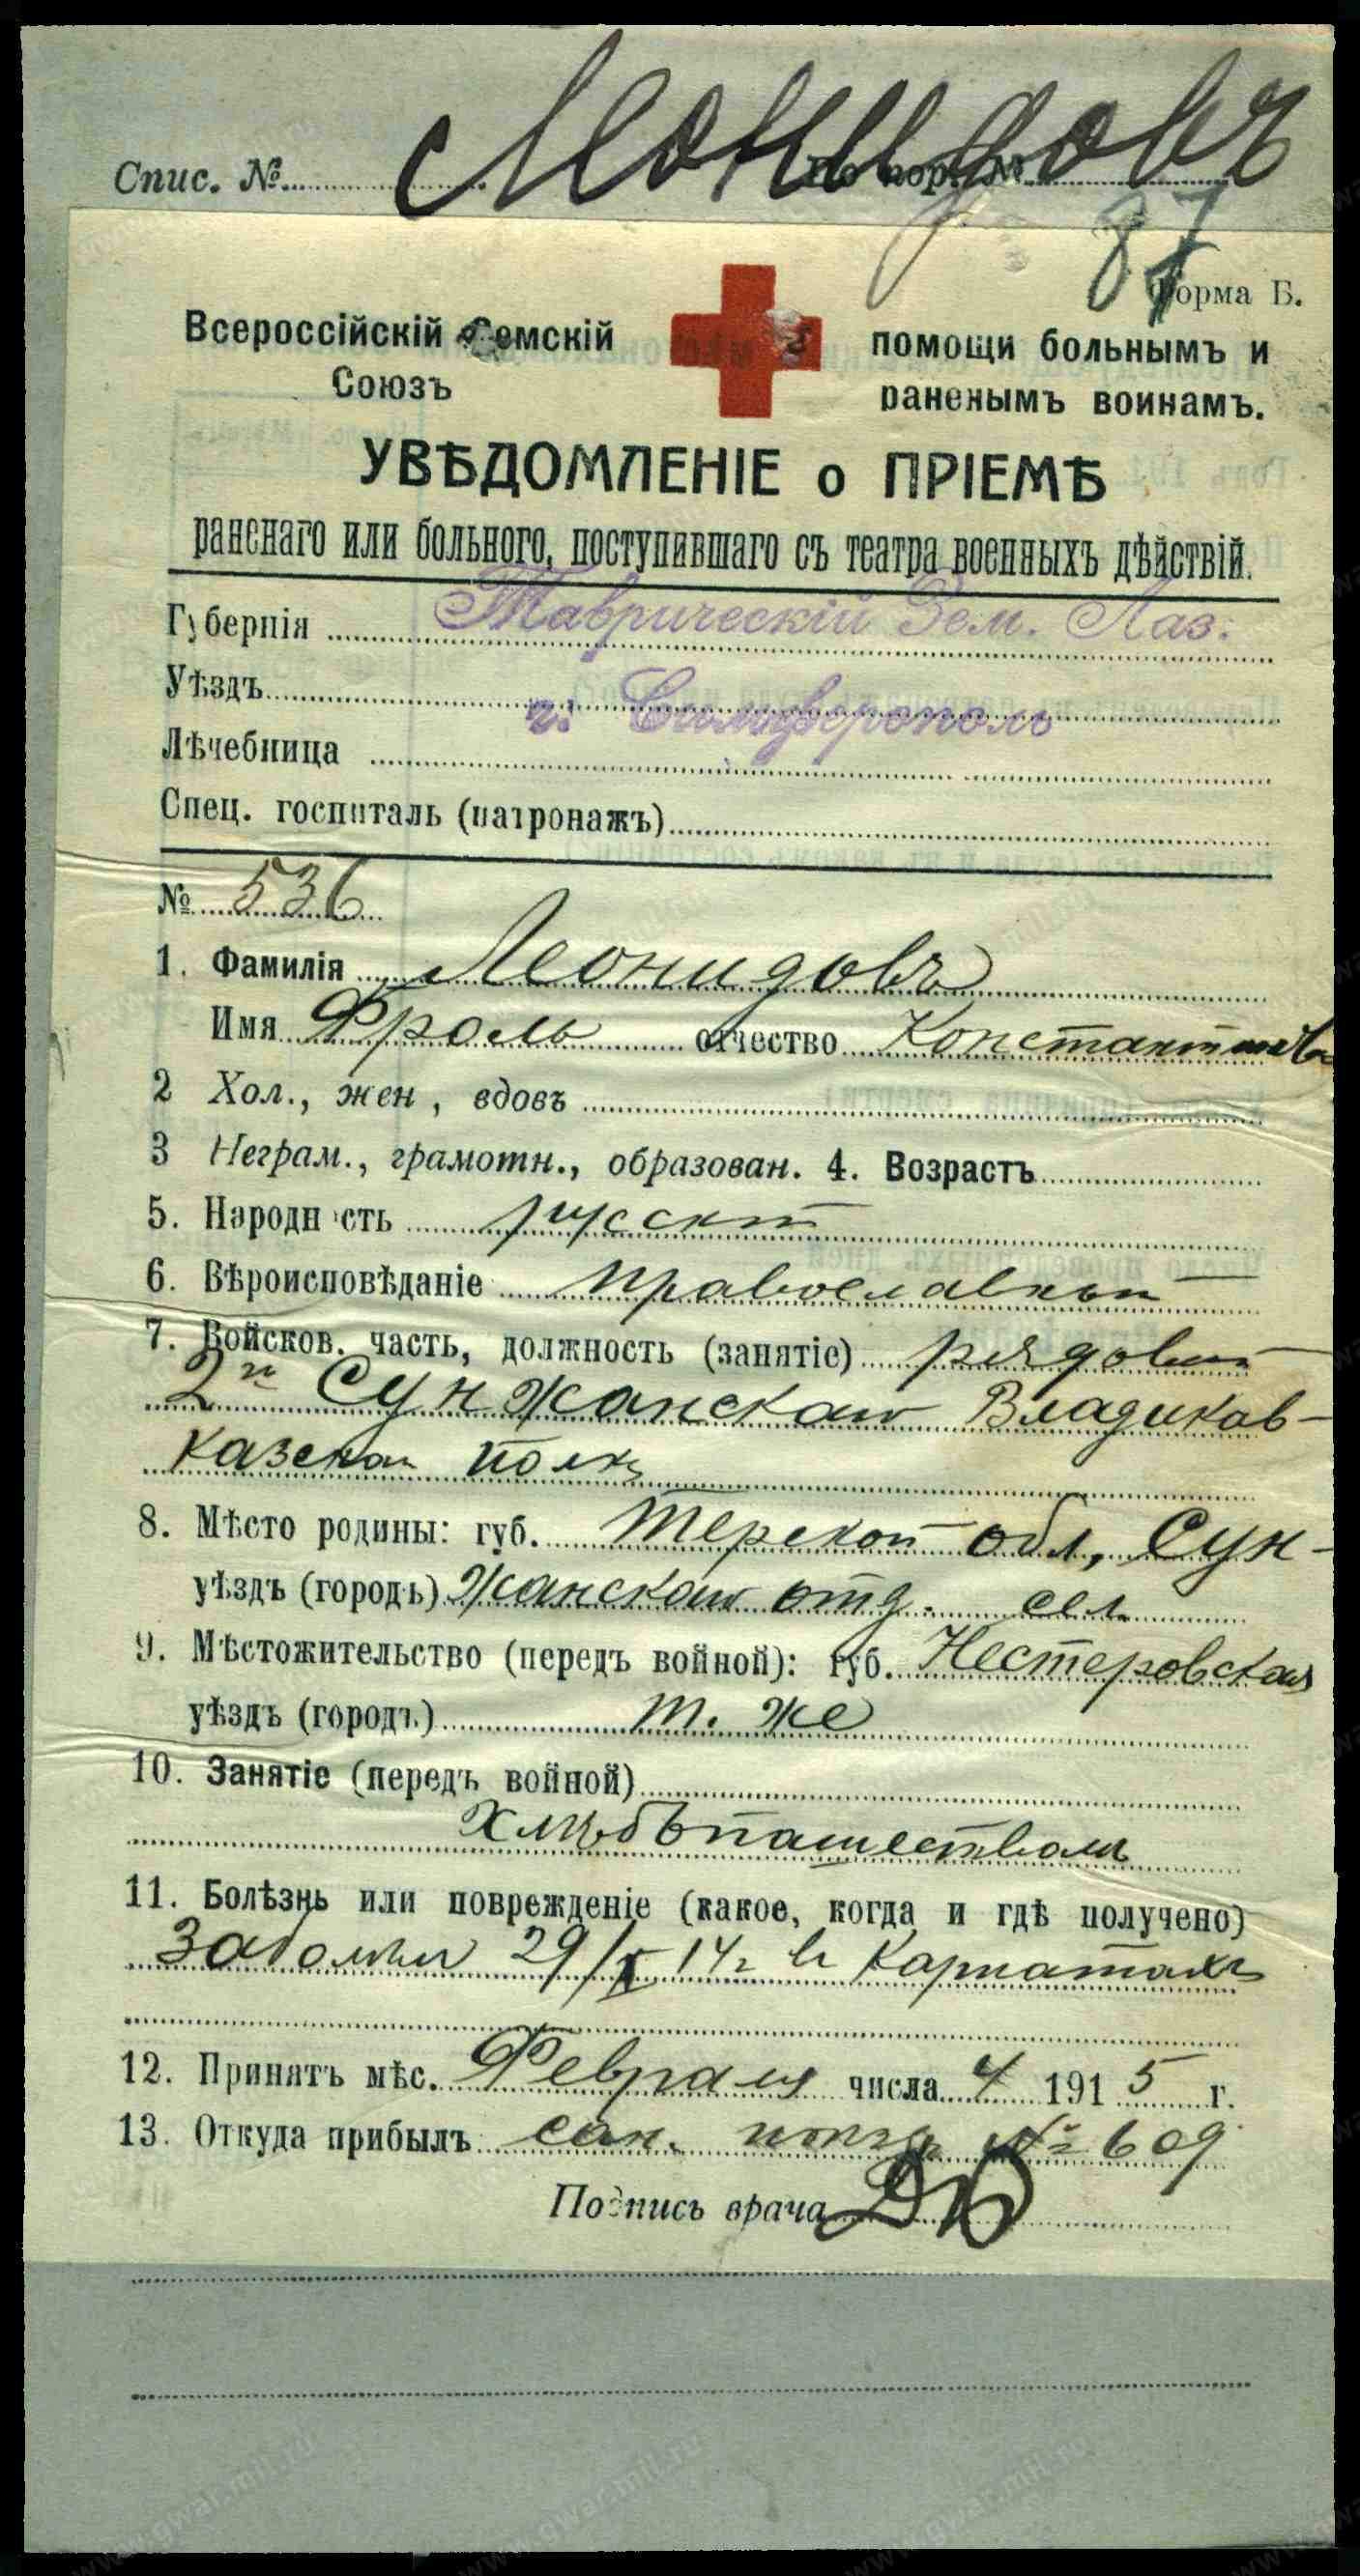 Леонидовъ
Спис. № По пор. №
87
Форма Б.
Всероссійскій Земскій помощи больнымъ и
Союзъ раненымъ воинамъ.
УВѢДОМЛЕНІЕ о ПРІЕМѢ
раненаго или больного, поступившаго съ театра военныхъ дѣйствій.
Губернія Таврическій Зем. Лаз.
Уѣздъ г. Симферополь
Лѣчебница
Спец. госпиталь (патронажъ)
№ 536
1. Фамилія Леонидовъ
Имя Фролъ отчество Константиновъ
2 Хол., жен, вдовъ
3 Неграм., грамотн., образован. 4. Возрастъ
5. Народность русскій
6. Вѣроисповѣданіе православный
7. Войсков. часть, должность (занятіе) рядовой
2й Сунжанскій Владикав-
казской полкъ
8. Мѣсто родины: губ. Терской обл, Сун-
уѣздъ (городъ) жанскаго отд. сел.
9. Мѣстожительство (передъ войной): губ. Нестеровская
уѣздъ (городъ) т. же
10. Занятіе (передъ войной)
хлѣбопашествомъ
11. Болѣзнь или поврежденіе (какое, когда и гдѣ получено)
Заболѣлъ 29/I 14г в Карпатахъ
12. Принятъ мѣс. Февраля числа 4 1915 г.
13. Откуда прибылъ сан. поѣзд № 609
Подпись врача
www.gwar.mil.ru